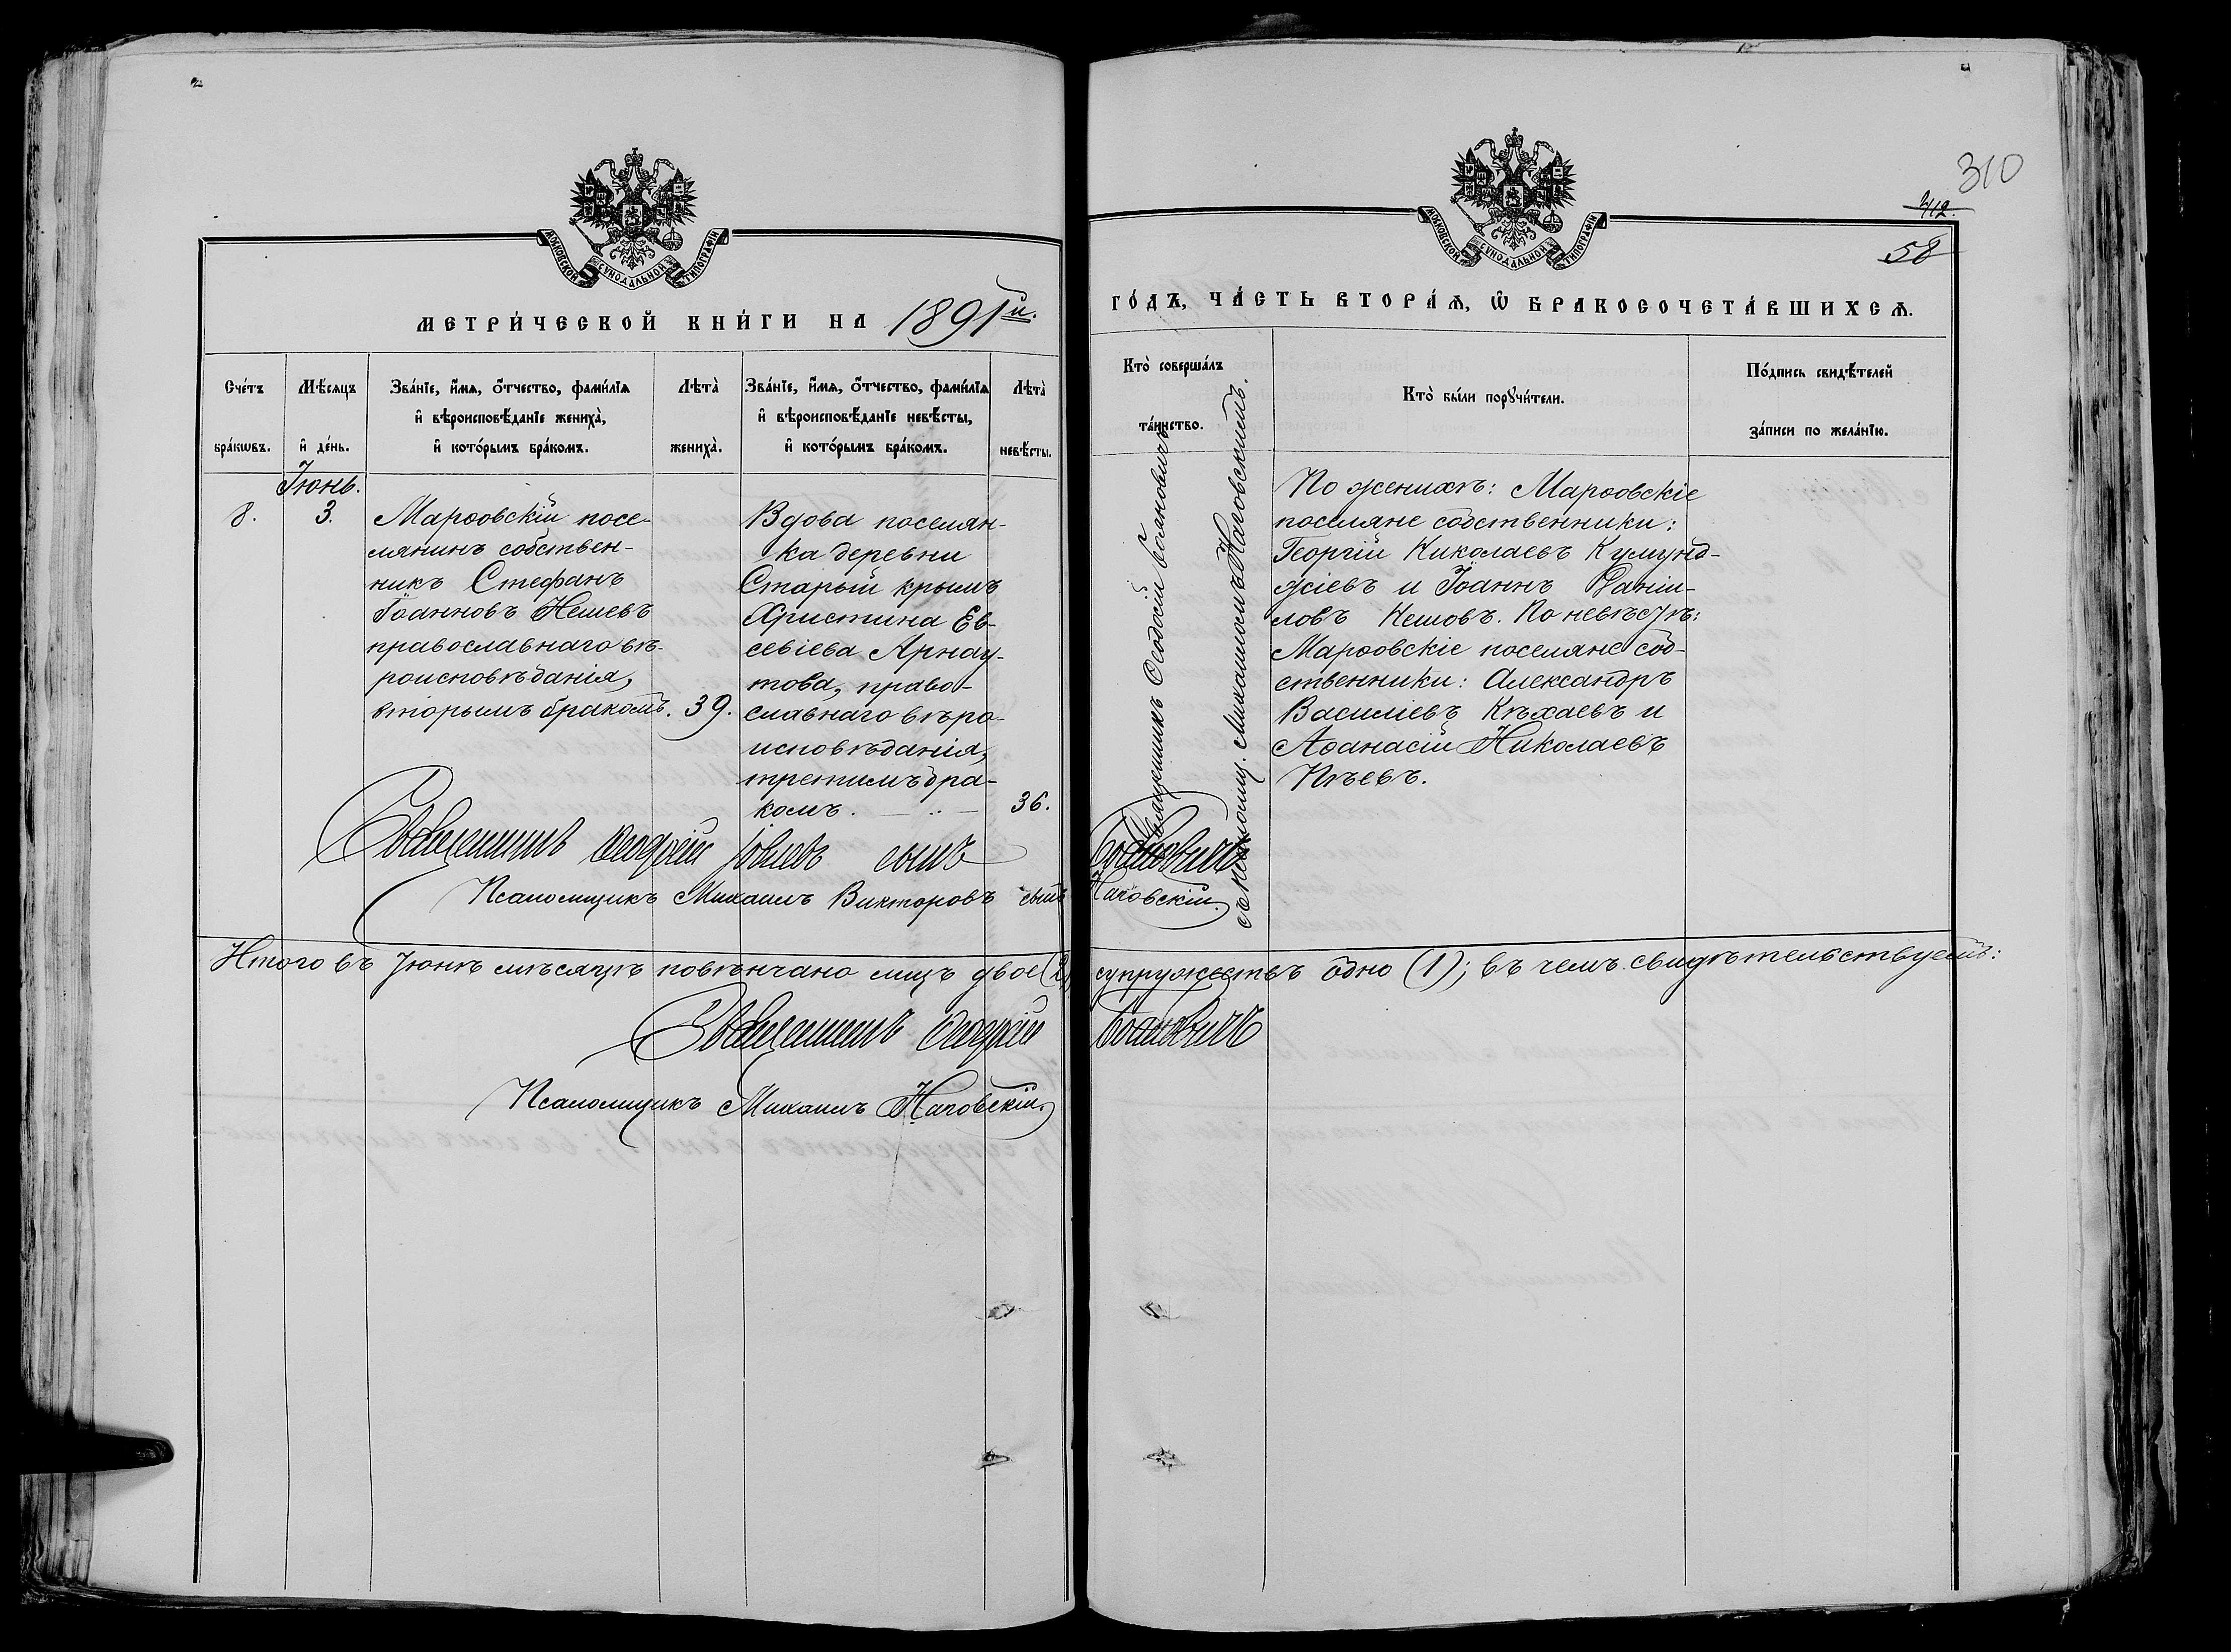 310
312.
58
МОСКОВСКОЙ СѴНОДАЛЬНОЙ ТИПОГРАФІИ
МОСКОВСКОЙ СѴНОДАЛЬНОЙ ТИПОГРАФІИ
МЕТРИ́ЧЕСКОЙ КНИ́ГИ НА 1891й.
ГО́ДЪ, ЧА́СТЬ ВТОРА́Я, Ѡ БРАКОСОЧЕТА́ВШИХСѦ.
Сче́тъ бра́кѡвъ.
Мѣ́сяцъ и де́нь.
Зва́нїе, и҆́мя, ѻ҆́тчество, фами́лїя
и҆ вѣроисповѣ́данїе жениха̀,
и҆ кото́рымъ бра́комъ.
Лѣта̀ жениха̀.
Зва́нїе, и҆́мя, ѻ҆́тчество, фами́лїя
и҆ вѣроисповѣ́данїе невѣ́сты,
и҆ кото́рымъ бра́комъ.
Лѣта̀ невѣ́сты.
Кто̀ соверша́лъ
та́инство.
Кто̀ бы́ли порꙋчи́тели.
По́дпись свидѣ́телей
за́писи по жела́нїю.
Іюнь.
8.
3.
Марѳовскій посе-
лянинъ собствен-
никъ Стефанъ
Іоанновъ Нешевъ
православнаго вѣ-
роисповѣданія,
вторымъ бракомъ.
39.
Вдова поселян-
ка деревни
Старый крымъ
Христина Ев-
севіева Арнау-
това, право-
славнаго вѣро-
исповѣданія,
третимъ бра-
комъ.
36.
Священникъ Ѳеодосій Боянович
Михаиломъ Наговскимъ.
По женихѣ: Марѳовскіе
поселяне собственники:
Георгій Николаевъ Кумунд-
жіевъ и Іоаннъ Даніи-
ловъ Нешовъ. По невѣстѣ:
Марѳовскіе поселяне соб-
ственники: Александръ
Василіевъ Кѣхаевъ и
Аѳанасій Николаевъ
Пѣевъ.
Священникъ Ѳеодосій Іовлевъ сынъ Бояновичъ
Псаломщикъ Михаилъ Викторовъ сынъ Наговскій.
Итого въ Іюнѣ мѣсяцѣ повѣнчано лицъ двое (2) супружествъ одно (1); въ чемъ свидѣтельствуетъ:
Священникъ Ѳеодосій Бояновичъ
Псаломщикъ Михаилъ Наговскій.